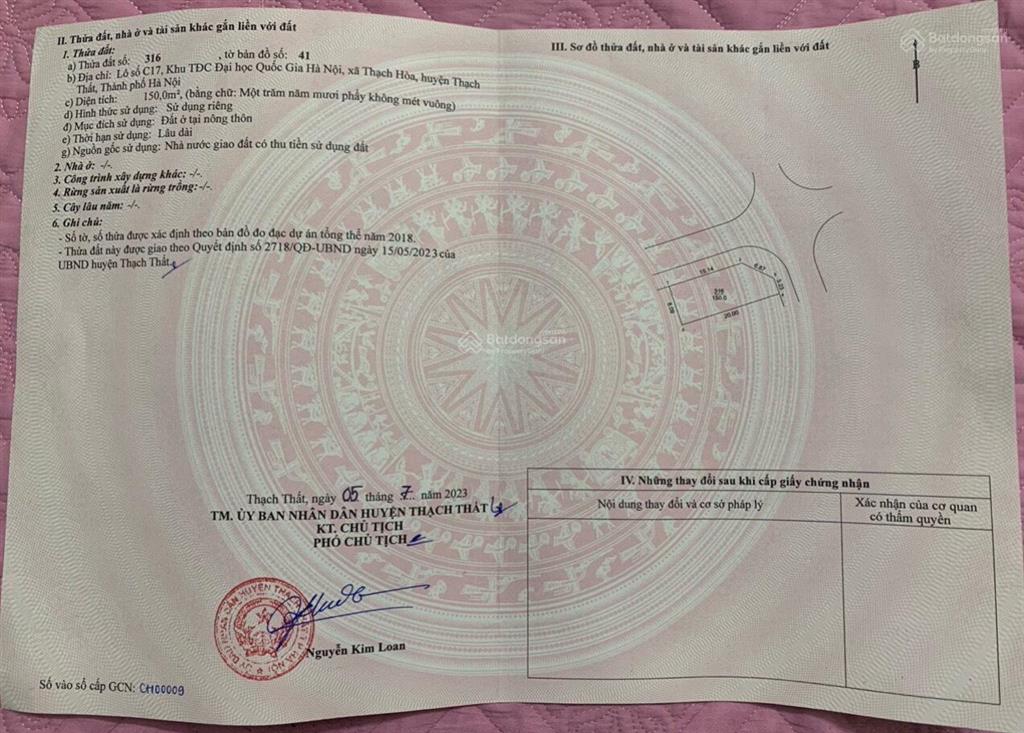 II. Thửa đất, nhà ở và tài sản khác gắn liền với đất
1. Thửa đất:
a) Thửa đất số: 316 , tờ bản đồ số: 41
b) Địa chỉ: Lô số C17, Khu TĐC Đại học Quốc Gia Hà Nội, xã Thạch Hòa, huyện Thạch
Thất, Thành phố Hà Nội
c) Diện tích: 150,0m², (bằng chữ: Một trăm năm mươi phẩy không mét vuông)
d) Hình thức sử dụng: Sử dụng riêng
đ) Mục đích sử dụng: Đất ở tại nông thôn
e) Thời hạn sử dụng: Lâu dài
g) Nguồn gốc sử dụng: Nhà nước giao đất có thu tiền sử dụng đất
2. Nhà ở: -/-.
3. Công trình xây dựng khác: -/-.
4. Rừng sản xuất là rừng trồng:-/-.
5. Cây lâu năm: -/-.
6. Ghi chú:
- Số tờ, số thửa được xác định theo bản đồ đo đạc dự án tổng thể năm 2018.
- Thửa đất này được giao theo Quyết định số 2718/QĐ-UBND ngày 15/05/2023 của
UBND huyện Thạch Thất
Thạch Thất, ngày 05 tháng 7 năm 2023
TM. ỦY BAN NHÂN DÂN HUYỆN THẠCH THẤT
KT. CHỦ TỊCH
PHÓ CHỦ TỊCH
Nguyễn Kim Loan
Số vào sổ cấp GCN: CH00009
III. Sơ đồ thửa đất, nhà ở và tài sản khác gắn liền với đất
B
Batdongsan
by PropertyGuru
19.14
6.67
3.23
316
150.0
8.09
20.00
Batdongsan
by PropertyGuru
IV. Những thay đổi sau khi cấp giấy chứng nhận
Nội dung thay đổi và cơ sở pháp lý
Xác nhận của cơ quan
có thẩm quyền